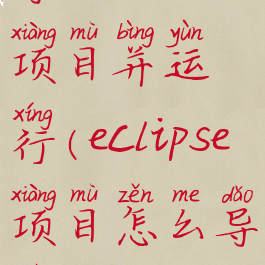 xiàng mù bìng yùn
项目并运
xíng
行(eclipse
xiàng mù zěn me dǎo
项目怎么导